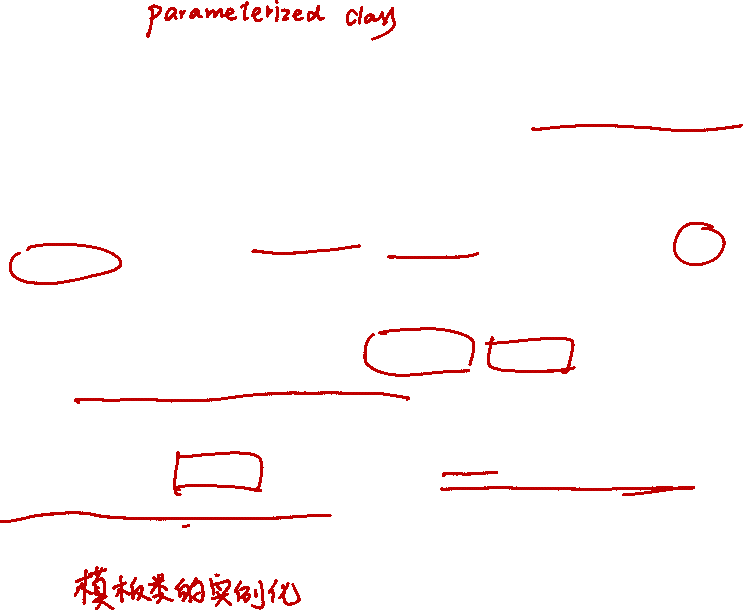 parameterized class
模板类的实例化